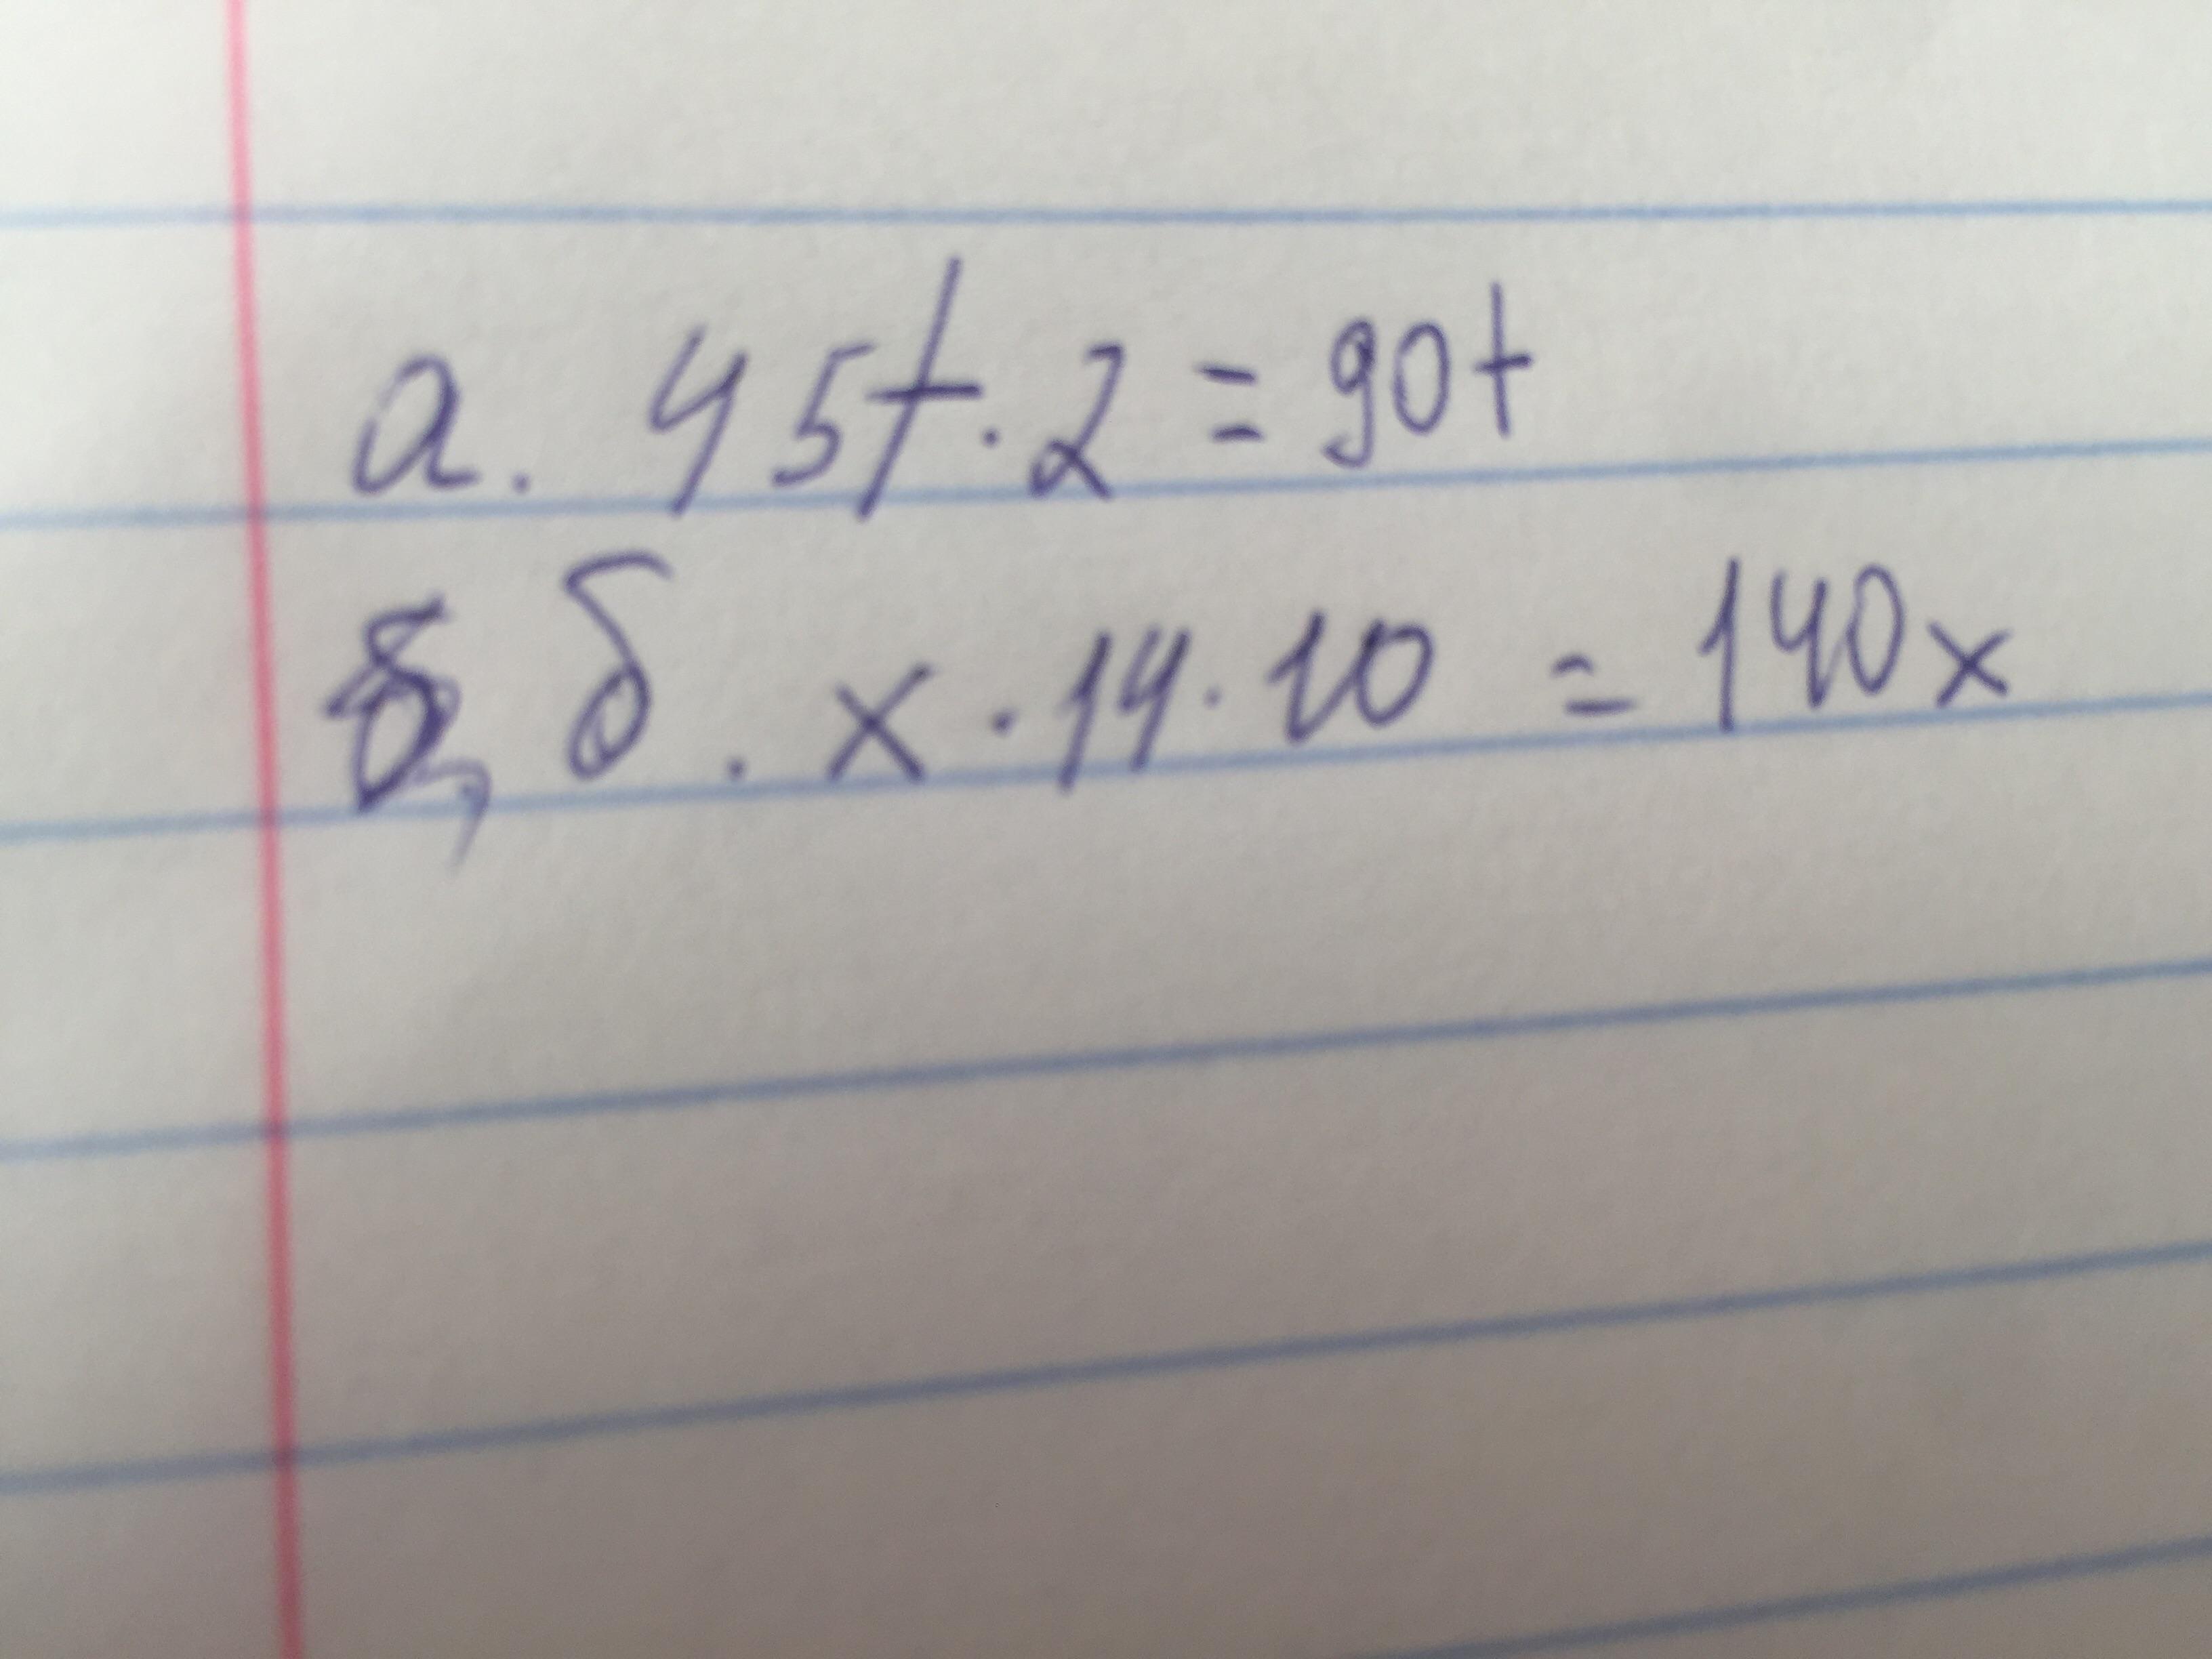 а. 45t · 2 = 90t
б. x · 14 · 10 = 140x